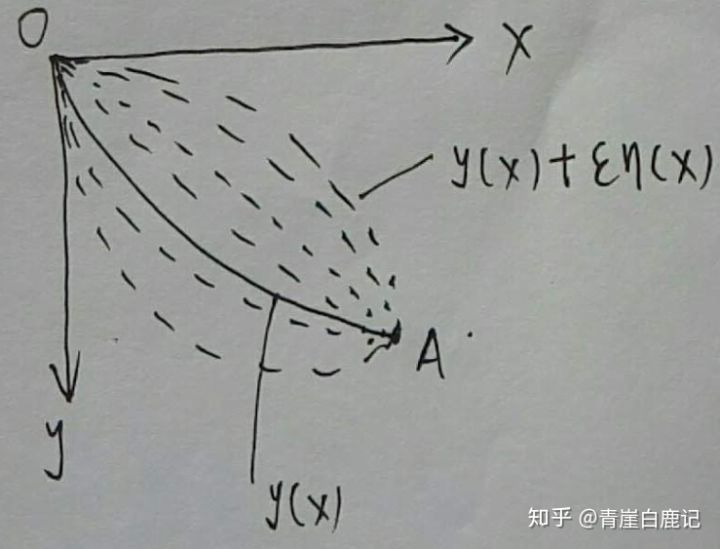 O
X
y(x)+εη(x)
A
y
y(x)
知乎 @青崖白鹿记